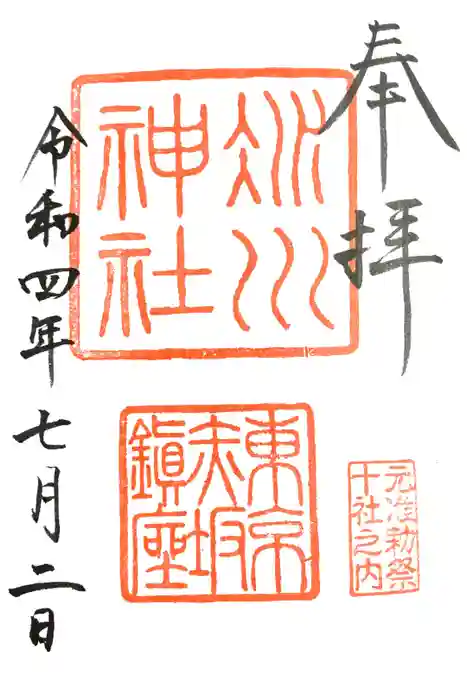 奉拝
氷川
神社
東京
赤坂
鎮座
元准勅祭
十社之内
令和四年七月二日